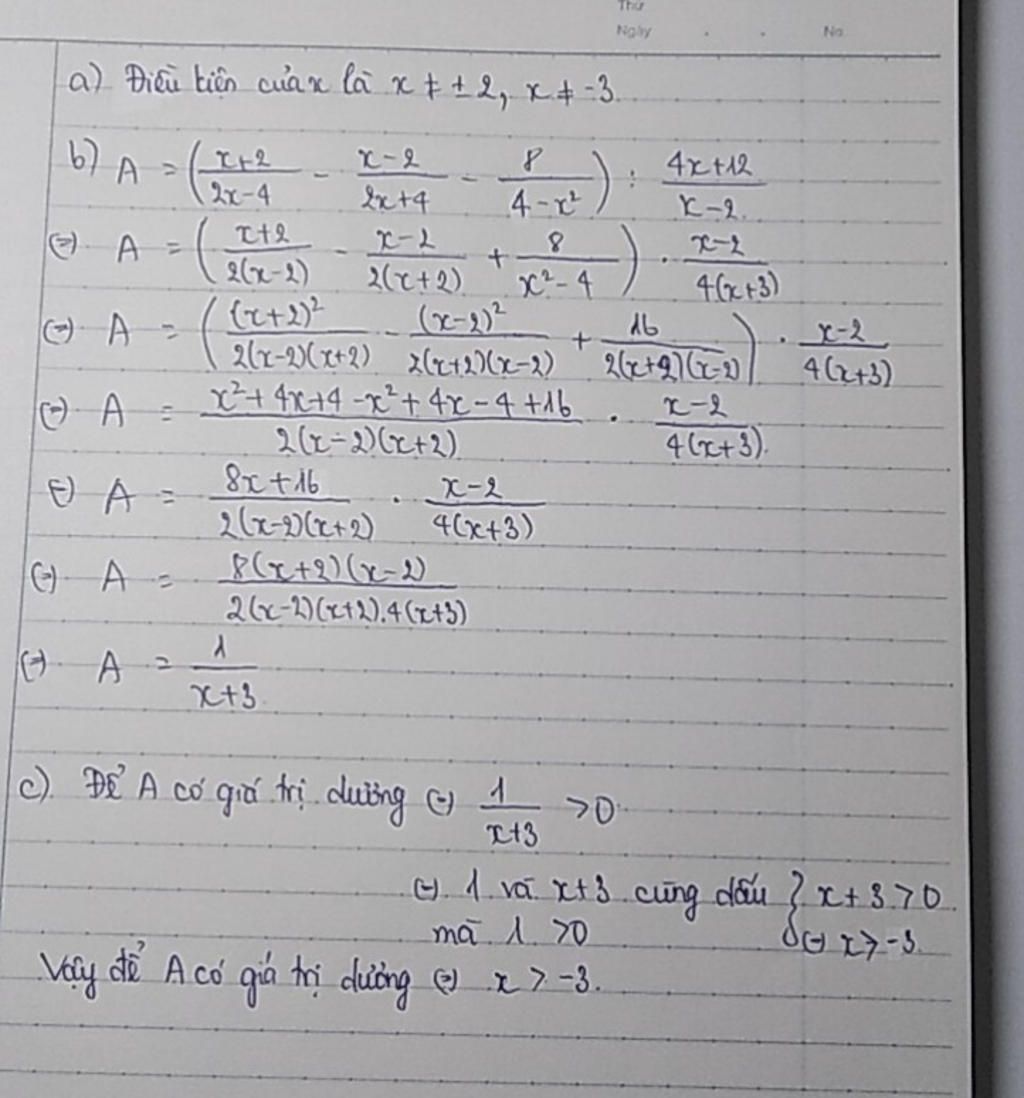 Thứ
Ngày . . No.
a) Điều kiện của x là x ≠ ±2, x ≠ -3.
b) A = ((x+2)/(2x-4) - (x-2)/(2x+4) - 8/(4-x²)) : (4x+12)/(x-2)
(=) A = ((x+2)/(2(x-2)) - (x-2)/(2(x+2)) + 8/(x²-4)) . (x-2)/(4(x+3))
(=) A = ((x+2)²/(2(x-2)(x+2)) - (x-2)²/(2(x+2)(x-2)) + 16/(2(x+2)(x-2))) . (x-2)/(4(x+3))
(=) A = (x²+4x+4-x²+4x-4+16)/(2(x-2)(x+2)) . (x-2)/(4(x+3))
(=) A = (8x+16)/(2(x-2)(x+2)) . (x-2)/(4(x+3))
(=) A = (8(x+2)(x-2))/(2(x-2)(x+2).4(x+3))
(=) A = 1/(x+3)
c) Để A có giá trị dương (=) 1/(x+3) > 0
(=) 1 và x+3 cùng dấu } x+3 > 0
mà 1 > 0 (=) x > -3
Vậy để A có giá trị dương (=) x > -3.